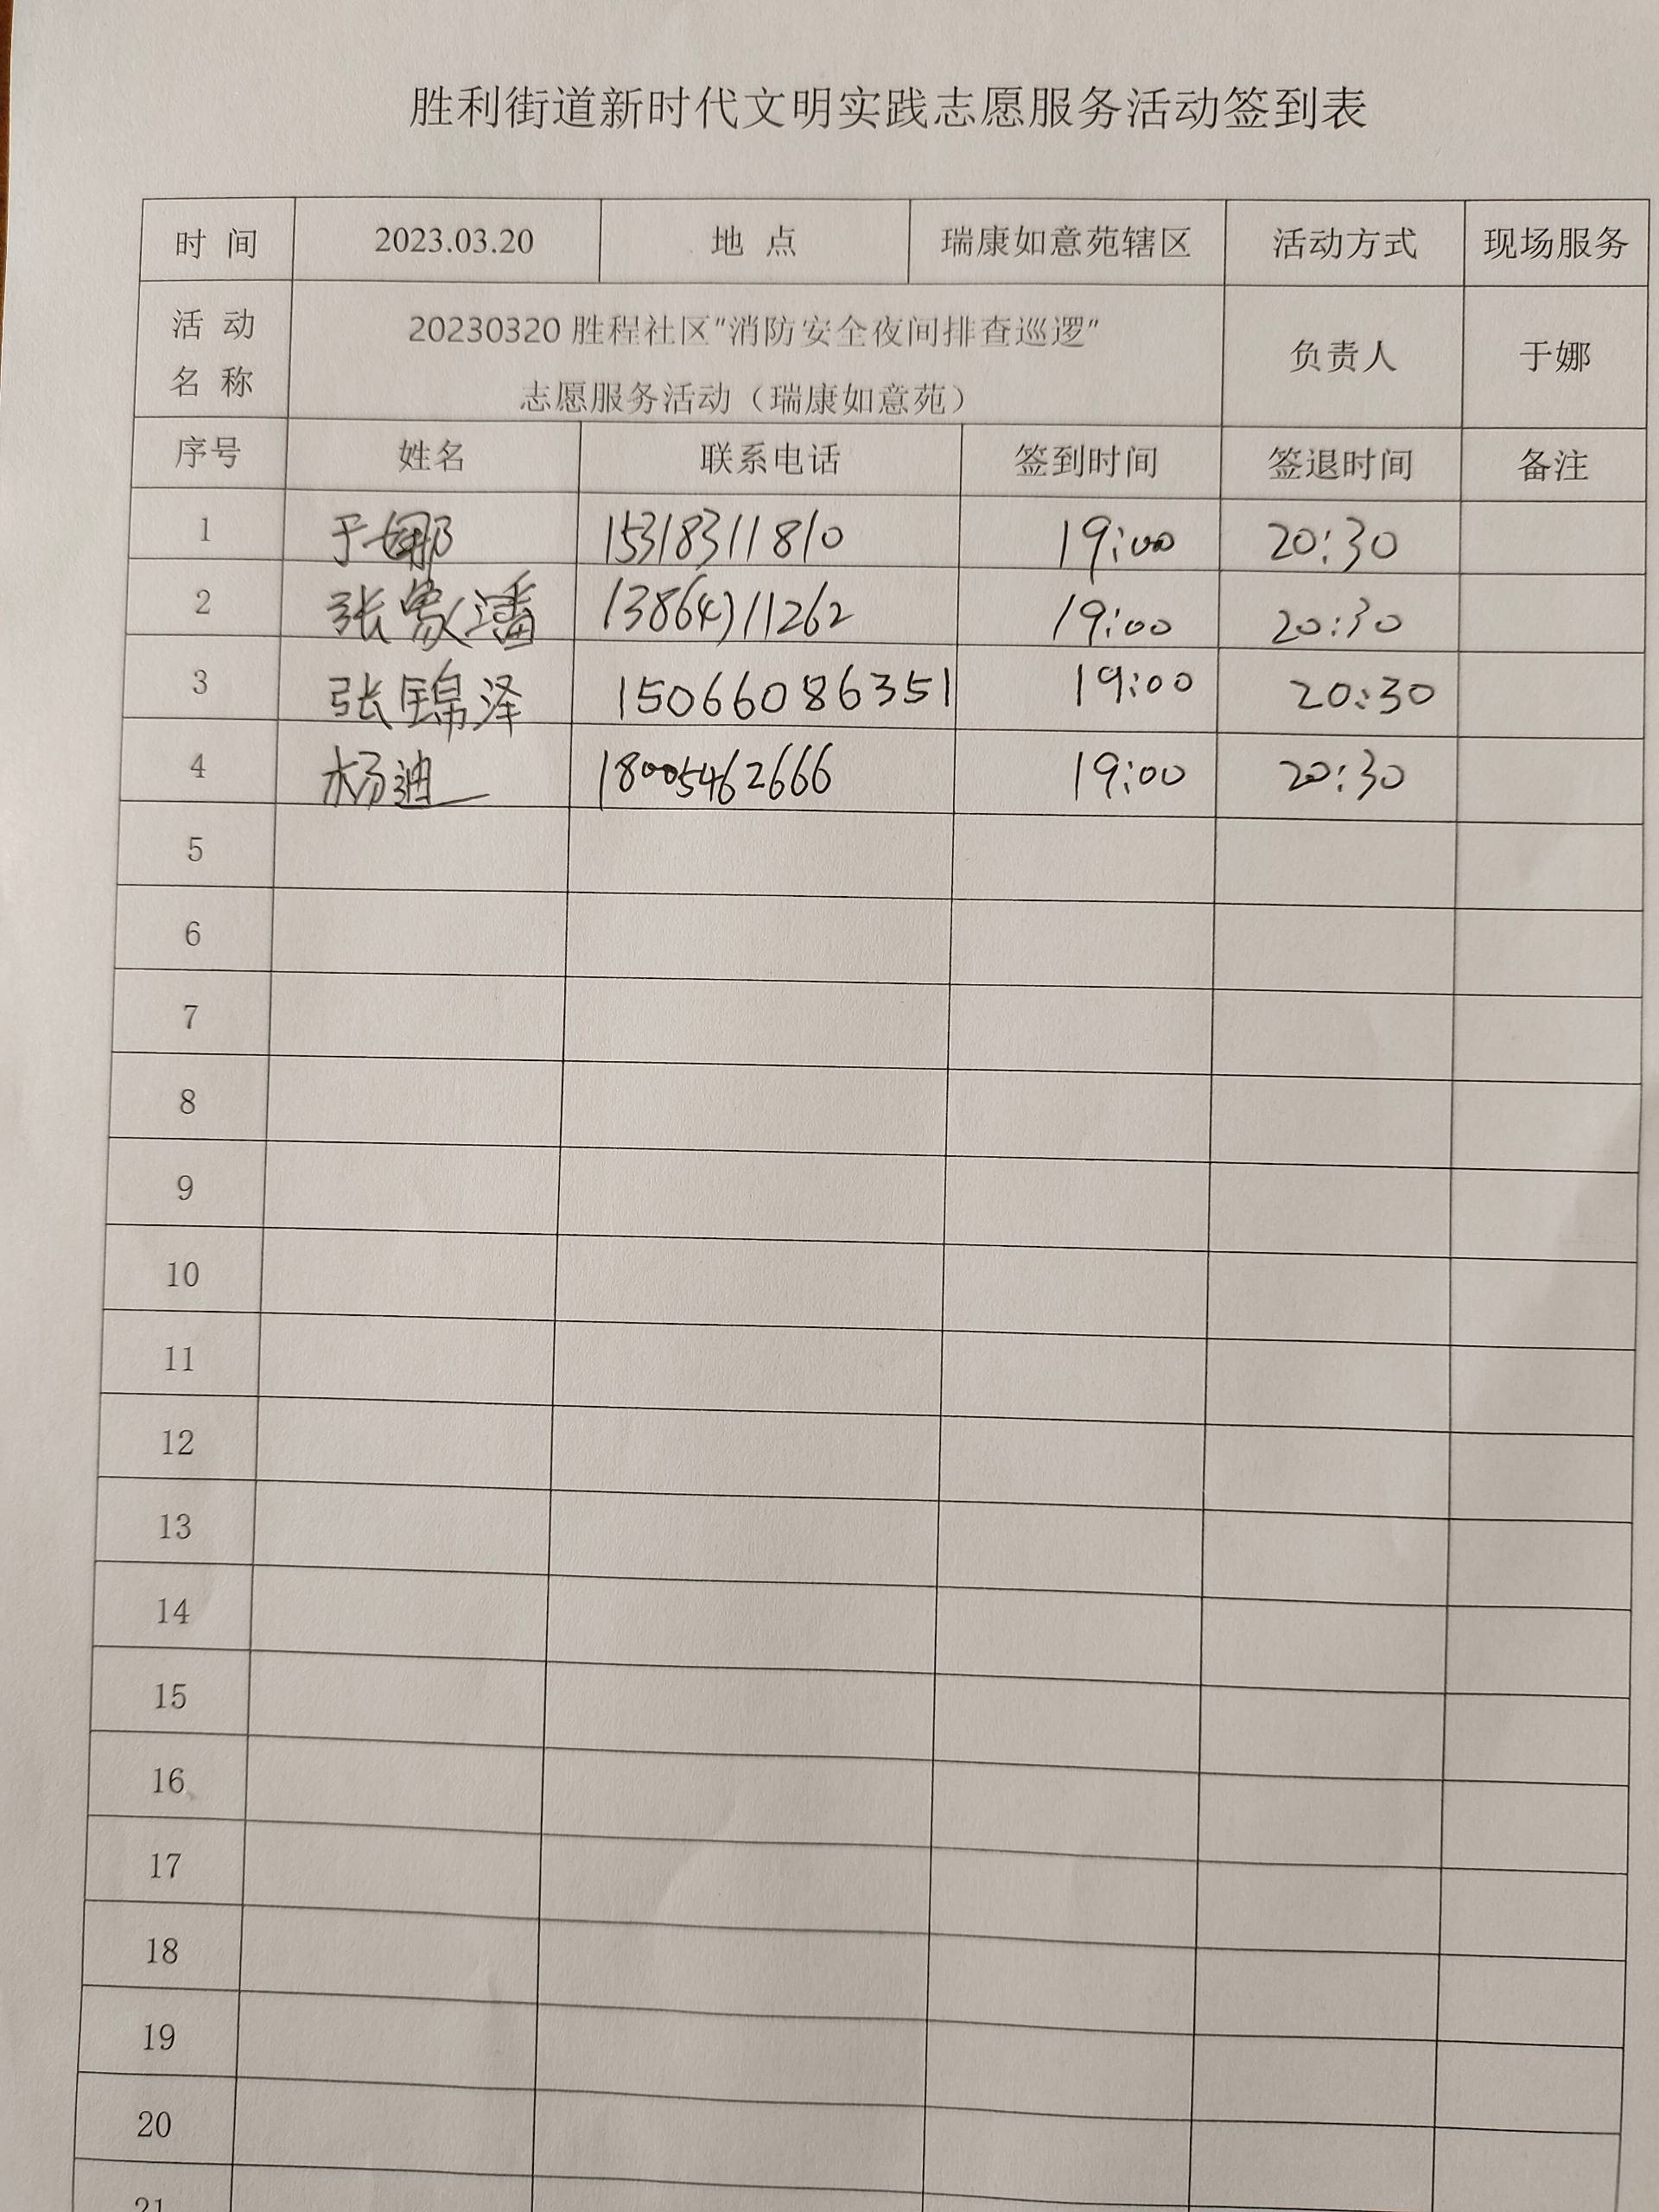 胜利街道新时代文明实践志愿服务活动签到表
时 间 2023.03.20 地 点 瑞康如意苑辖区 活动方式 现场服务
活 动 名 称 20230320 胜程社区"消防安全夜间排查巡逻" 负责人 于娜
志愿服务活动（瑞康如意苑）
序号 姓名 联系电话 签到时间 签退时间 备注
1 于娜 15318311810 19:00 20:30
2 张 19:00 20:30
3 张锦泽 15066086351 19:00 20:30
4 杨迪 18005462666 19:00 20:30
5
6
7
8
9
10
11
12
13
14
15
16
17
18
19
20
21